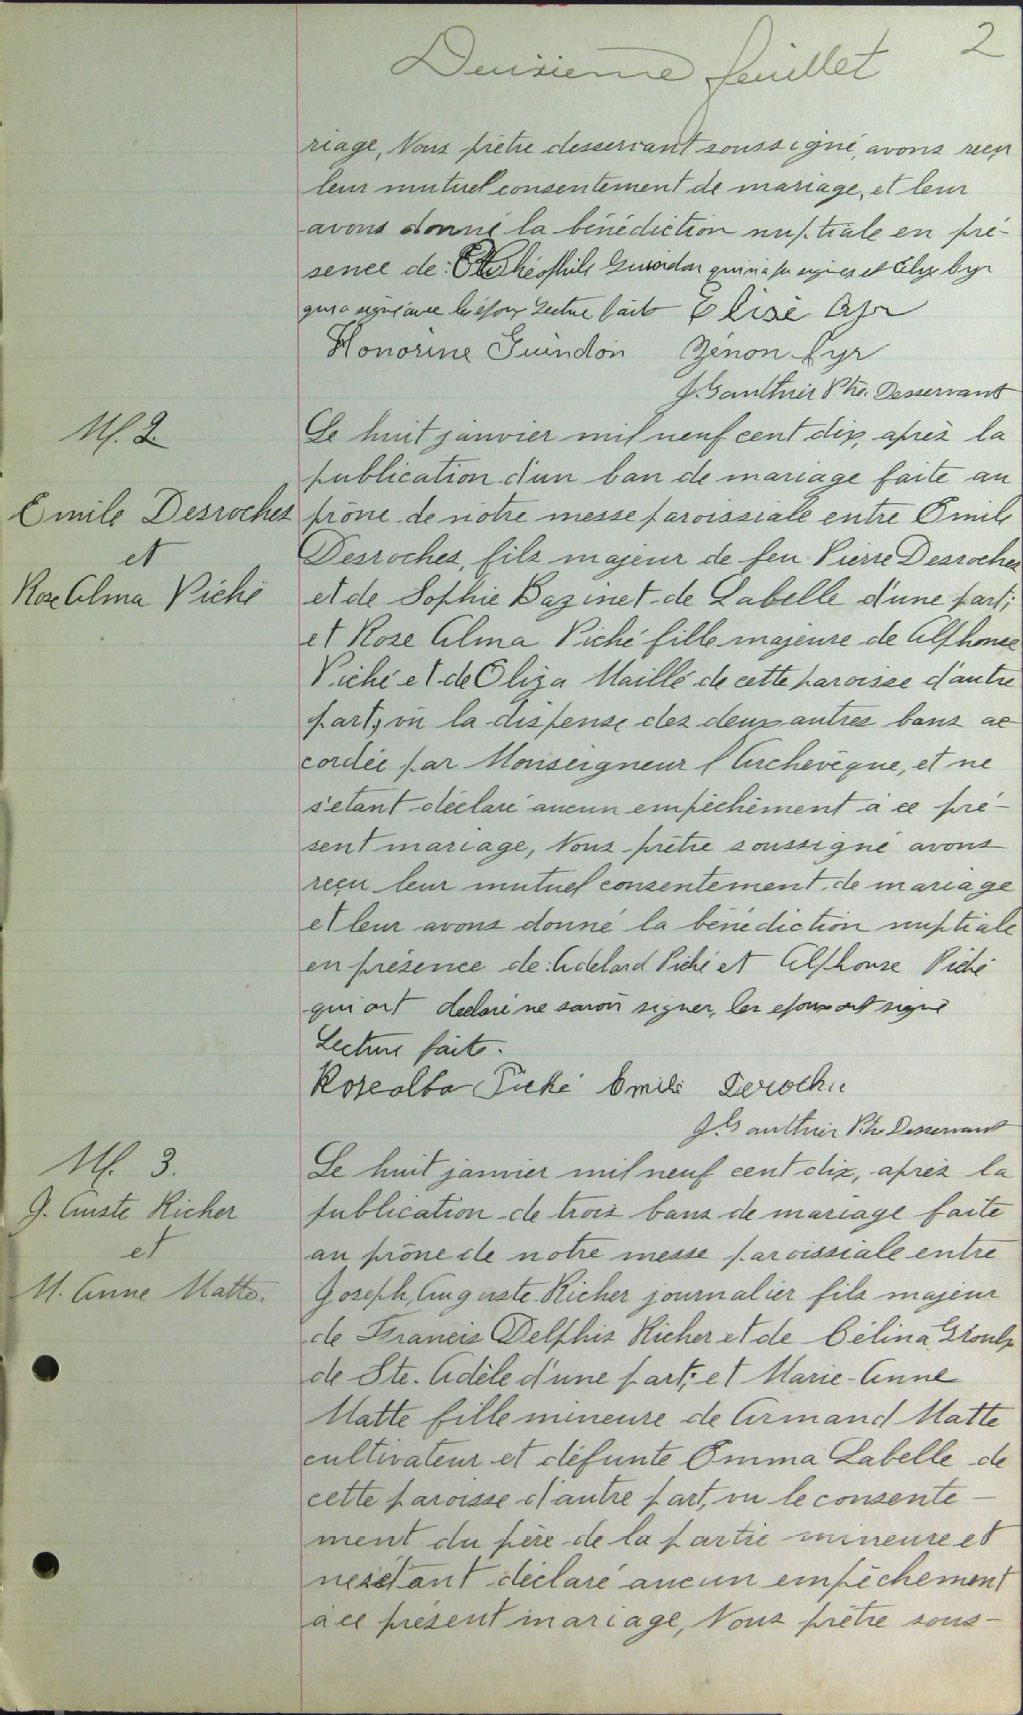 2
Deuxieme feuillet
riage, Nous prêtre desservant soussigné, avons reçu
leur mutuel consentement de mariage, et leur
avons donné la bénédiction nuptiale en pré-
sence de: Théophile Guindon qui n'a pu signer et Elise Cyr
qui a signé avec les époux Lecture faite Elisé Cyr
Honorine Guindon Zénon Cyr
J. Gauthier Ptre. Desservant
M. 2.
Emile Desroches
et
Rose Alma Piché
Le huit janvier mil neuf cent dix, après la
publication d'un ban de mariage faite au
prône de notre messe paroissiale entre Emile
Desroches, fils majeur de feu Pierre Desroches
et de Sophie Bazinet de Labelle d'une part;
et Rose Alma Piché fille majeure de Alphonse
Piché et de Eliza Maillé de cette paroisse d'autre
part, vu la dispense des deux autres bans ac
cordée par Monseigneur l'Archevêque, et ne
s'etant déclaré aucun empêchement à ce pré-
sent mariage, Nous prêtre soussigné avons
reçu leur mutuel consentement de mariage
et leur avons donné la bénédiction nuptiale
en présence de: Adelard Piché et Alphonse Piché
qui ont declaré ne savoir signer, les epoux ont signé
Lecture faite.
Rosealba Piché Emile Deroche
J. Gauthier Ptre Desservant
M. 3.
J. Auste Richer
et
M. Anne Matte.
Le huit janvier mil neuf cent dix, après la
publication de trois bans de mariage faite
au prône de notre messe paroissiale entre
Joseph Auguste Richer journalier fils majeur
de Francis Delphis Richer et de Célina Groulx
de Ste. Adèle d'une part; et Marie-Anne
Matte fille mineure de Armand Matte
cultivateur et défunte Emma Labelle de
cette paroisse d'autre part, vu le consente-
ment du père de la partie mineure et
ne s'étant déclaré aucun empêchement
à ce présent mariage, Nous prêtre sous-